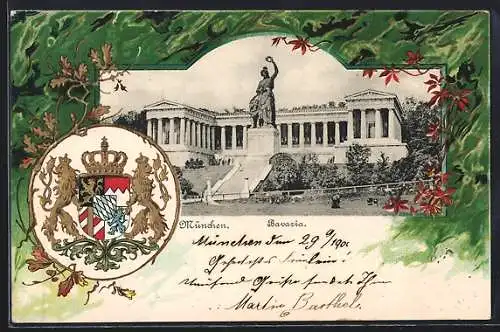 München.
Bavaria.
München den 29/9 190
Geehrtes Fräulein!
Grüße sendet Ihnen
Martin Barthel.